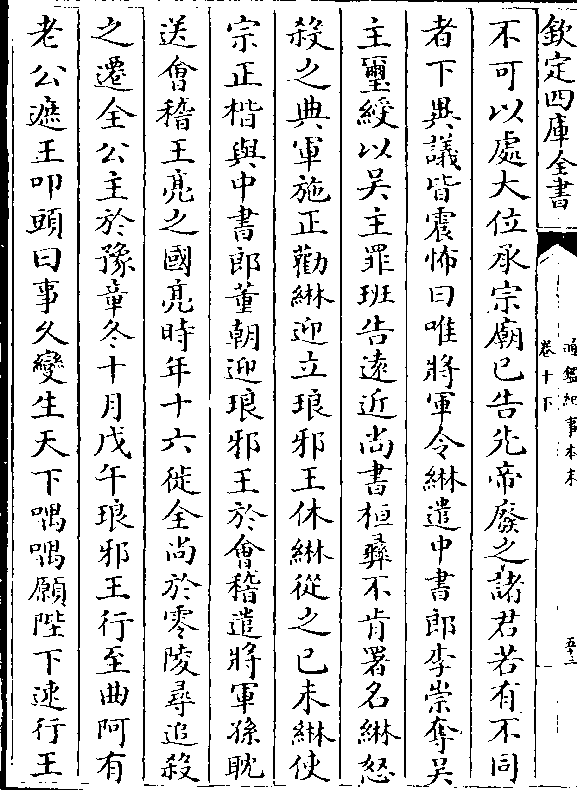 欽定四庫全書
通鑑紀事本末
卷十下
五十三
不可以處大位承宗廟已告先帝廢之諸君若有不同
者下異議皆震怖曰唯將軍令綝遣中書郎李崇奪吴
主璽綬以吴主罪班告遠近尚書桓彞不肯署名綝怒
殺之典軍施正勸綝迎立琅邪王休綝從之己未綝使
宗正楷與中書郎董朝迎琅邪王於會稽遣將軍孫耽
送會稽王亮之國亮時年十六徙全尚於零陵尋追殺
之遷全公主於豫章冬十月戊午琅邪王行至曲阿有
老公遮王叩頭曰事久變生天下喁喁願陛下速行王